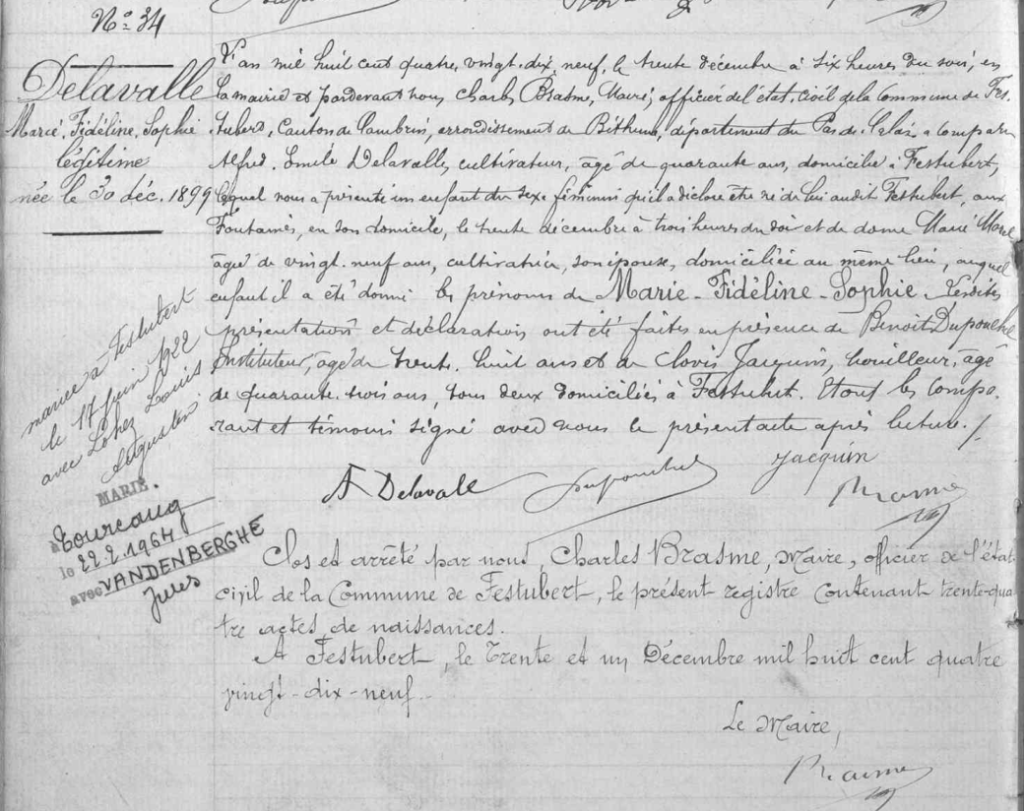 No 34
Delavalle
Marie, Fidéline, Sophie
légitime
née le 30 déc. 1899
L'an mil huit cent quatre, vingt-dix, neuf, le trente décembre à six heures du soir, en
la mairie et pardevant nous Charles Brasme, Maire, officier de l'état, civil de la Commune de Fes-
tubert, Canton de Cambrin, arrondissement de Béthune, département du Pas de Calais, a comparu
Alfred, Emile Delavalle, cultivateur, âgé de quarante ans, domicilié à Festubert,
lequel nous a présenté un enfant du sexe féminin qu'il a déclaré être né de lui audit Festubert, aux
Fontaines, en son domicile, le trente décembre à trois heures du soir et de dame Marie Morel
âgée de vingt-neuf ans, cultivatrice, son épouse, domiciliée au même lieu, auquel
enfant il a été donné les prénoms de Marie-Fidéline-Sophie. Lesdites
présentations et déclarations ont été faites en présence de Benoit Dupouchel
Instituteur, âgé de trente-huit ans et de Clovis Jacquin, houilleur, âgé
de quarante-trois ans, tous deux domiciliés à Festubert. Et ont les compa-
rant et témoins signé avec nous le présent acte après lecture./.
A Delavalle Dupouchel Jacquin Brasme
mariée à Festubert
le 17 juin 1922
avec Lohez Louis
Augustin
MARIÉ.
à Tourcoing
le 22.2.1964
avec VANDENBERGHE
Jules
Clos et arrêté par nous, Charles Brasme, Maire, officier de l'état-
civil de la Commune de Festubert, le présent registre contenant trente-qua-
tre actes de naissances.
A Festubert, le Trente et un Décembre mil huit cent quatre
vingt-dix-neuf.
Le Maire,
Brasme